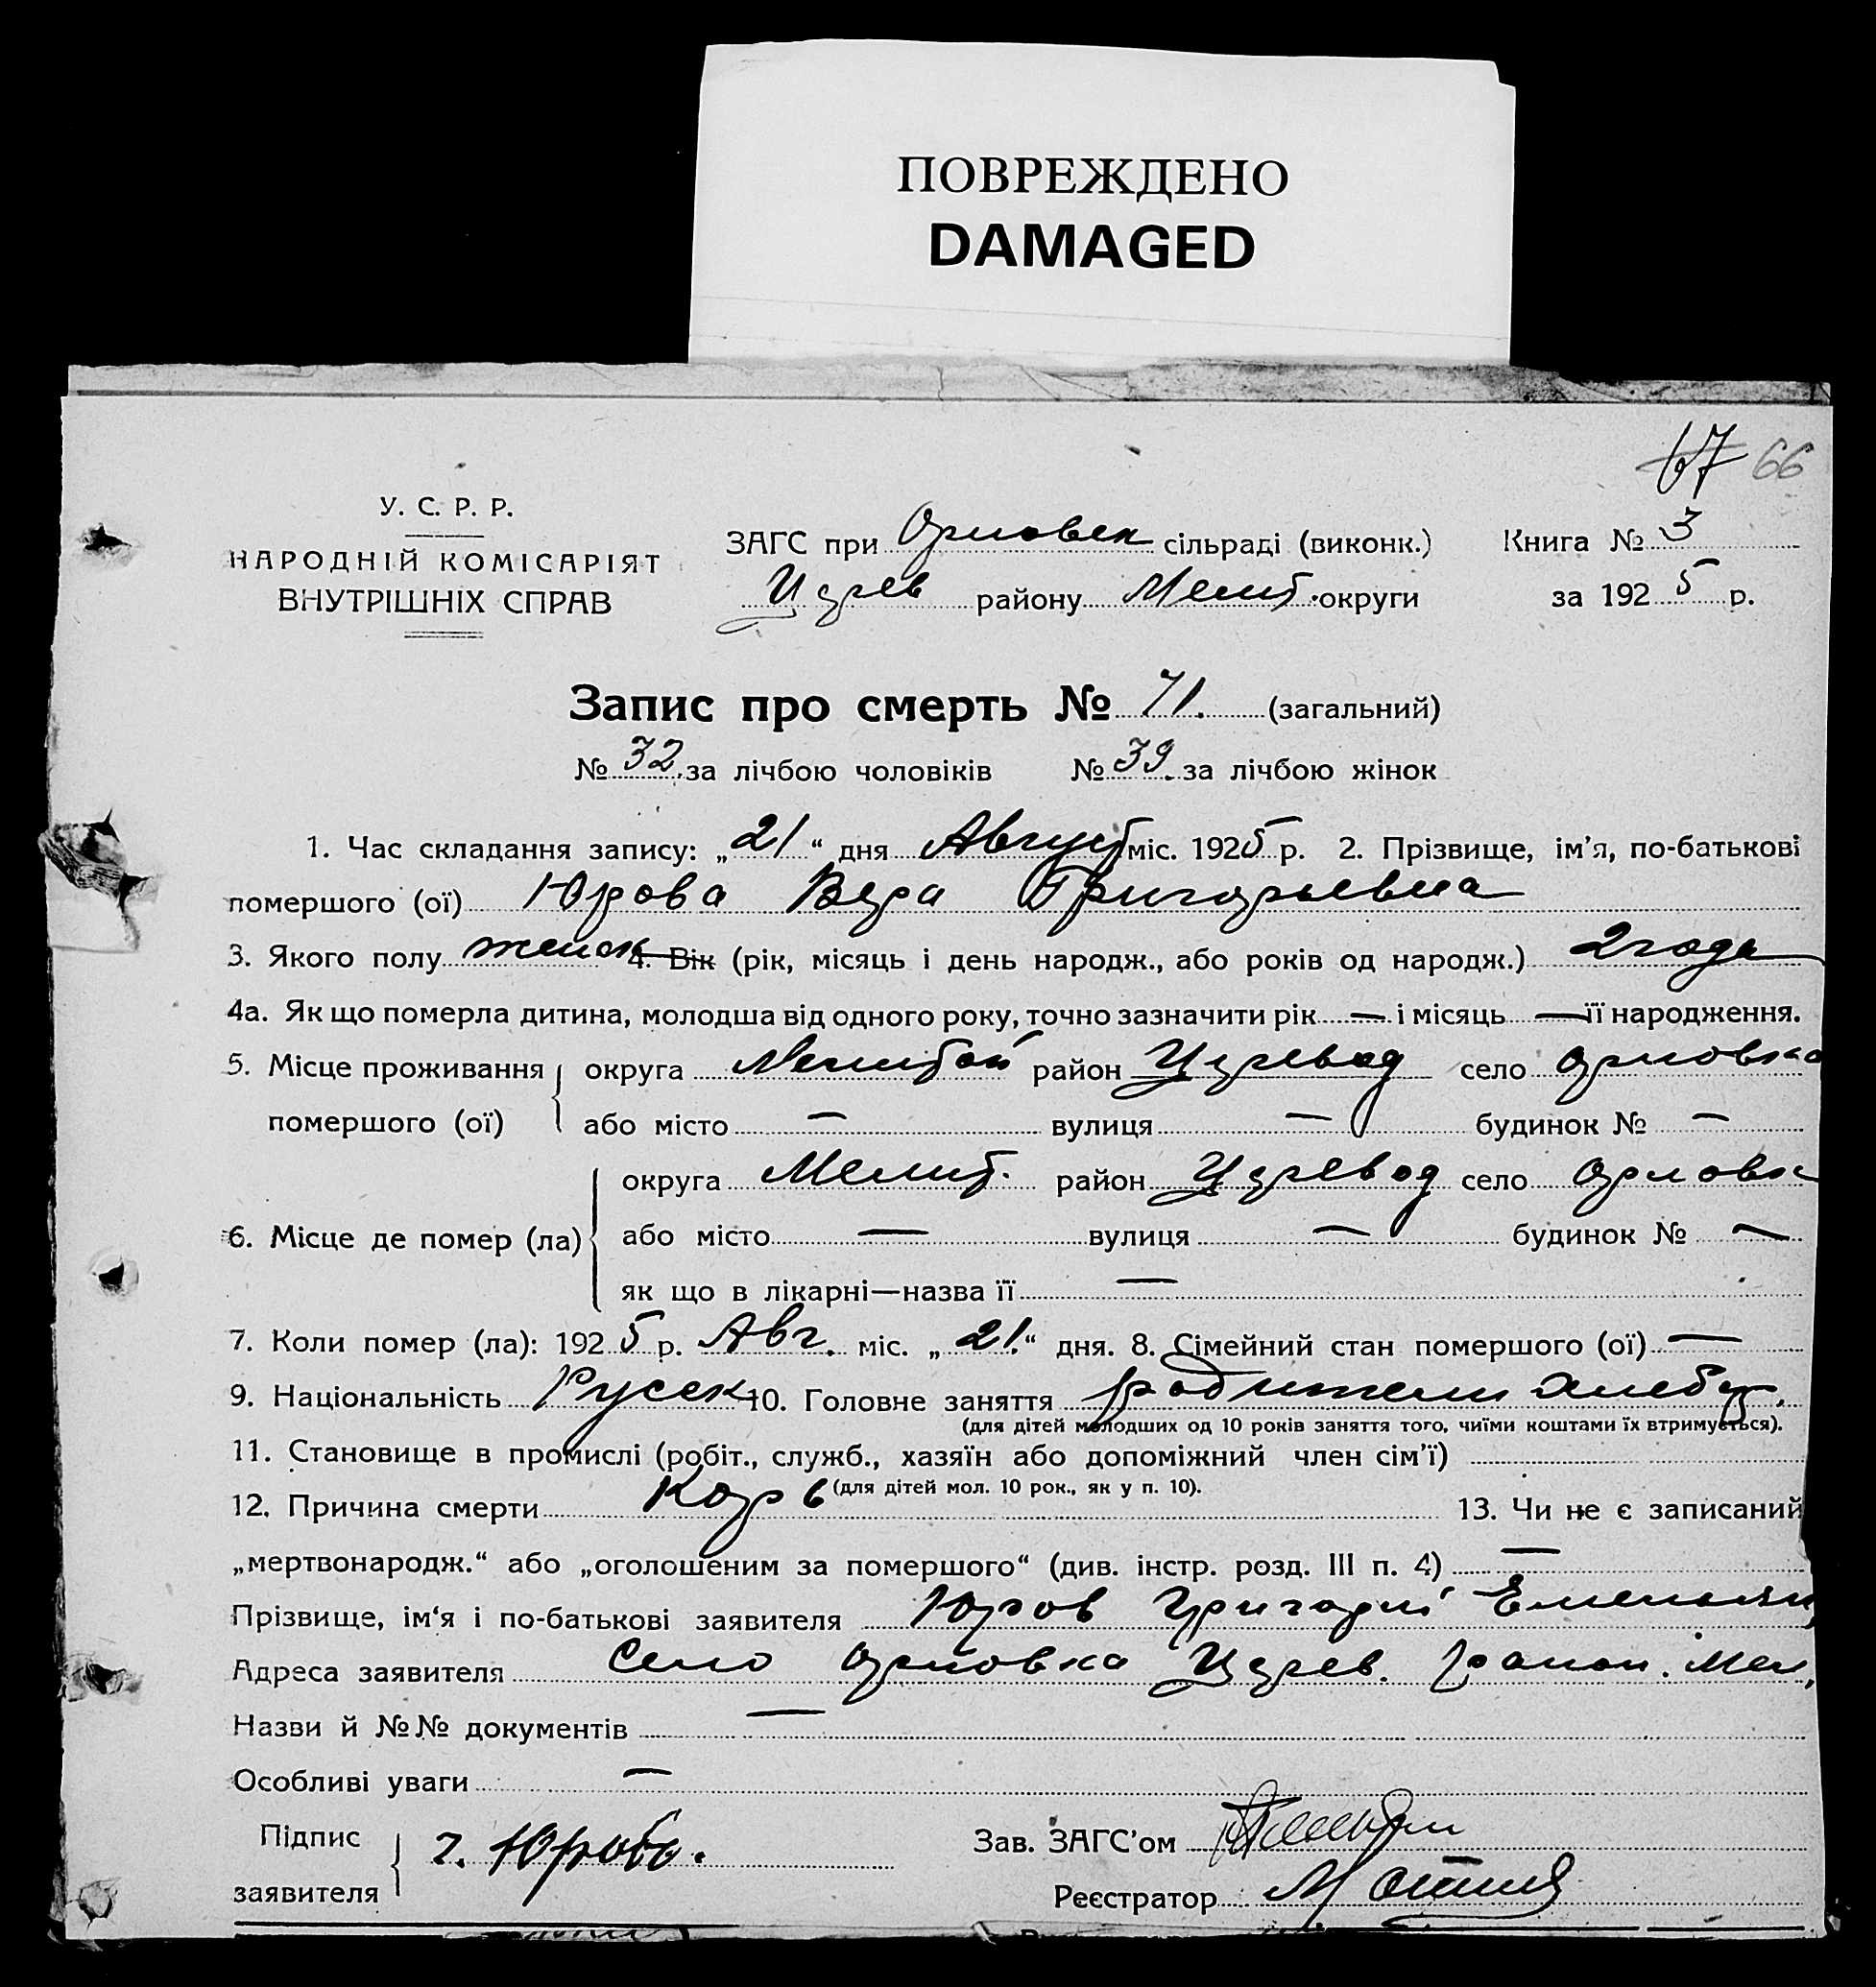 ПОВРЕЖДЕНО
DAMAGED
67 66
У. С. Р. Р.
НАРОДНІЙ КОМІСАРІЯТ
ВНУТРІШНІХ СПРАВ
ЗАГС при Орловск сільраді (виконк.)
Цárев району Мелит. округи
Книга № 3
за 1925 р.
Запис про смерть № 71. (загальний)
№ 32 за лічбою чоловіків № 39 за лічбою жінок
1. Час складання запису: „21“ дня Август міс. 1925 р. 2. Прізвище, ім’я, по-батькові
помершого (ої) Юрова Вера Григорьевна
3. Якого полу женск 4. Вік (рік, місяць і день народж., або років од народж.) 2 года
4а. Як що померла дитина, молодша від одного року, точно зазначити рік — і місяць — її народження.
5. Місце проживання помершого (ої) округа район село Орловка
або місто — вулиця — будинок № —
6. Місце де помер (ла) округа Мелит. район село Орловка
або місто — вулиця — будинок № —
як що в лікарні—назва її —
7. Коли помер (ла): 1925 р. Авг. міс. „21“ дня. 8. Сімейний стан помершого (ої) —
9. Національність Русск 10. Головне заняття родители хлебор.
(для дітей молодших од 10 років заняття того, чиїми коштами їх втримується).
11. Становище в промислі (робіт., служб., хазяїн або допоміжний член сім’ї)
(для дітей мол. 10 рок., як у п. 10).
12. Причина смерти Корь 13. Чи не є записаний
„мертвонародж.“ або „оголошеним за помершого“ (див. інстр. розд. III п. 4) —
Прізвище, ім’я і по-батькові заявителя Юров Григорий Емельян
Адреса заявителя Село Орловка район. Мел.
Назви й №№ документів —
Особливі уваги —
Підпис заявителя Г. Юров.
Зав. ЗАГС’ом
Реєстратор